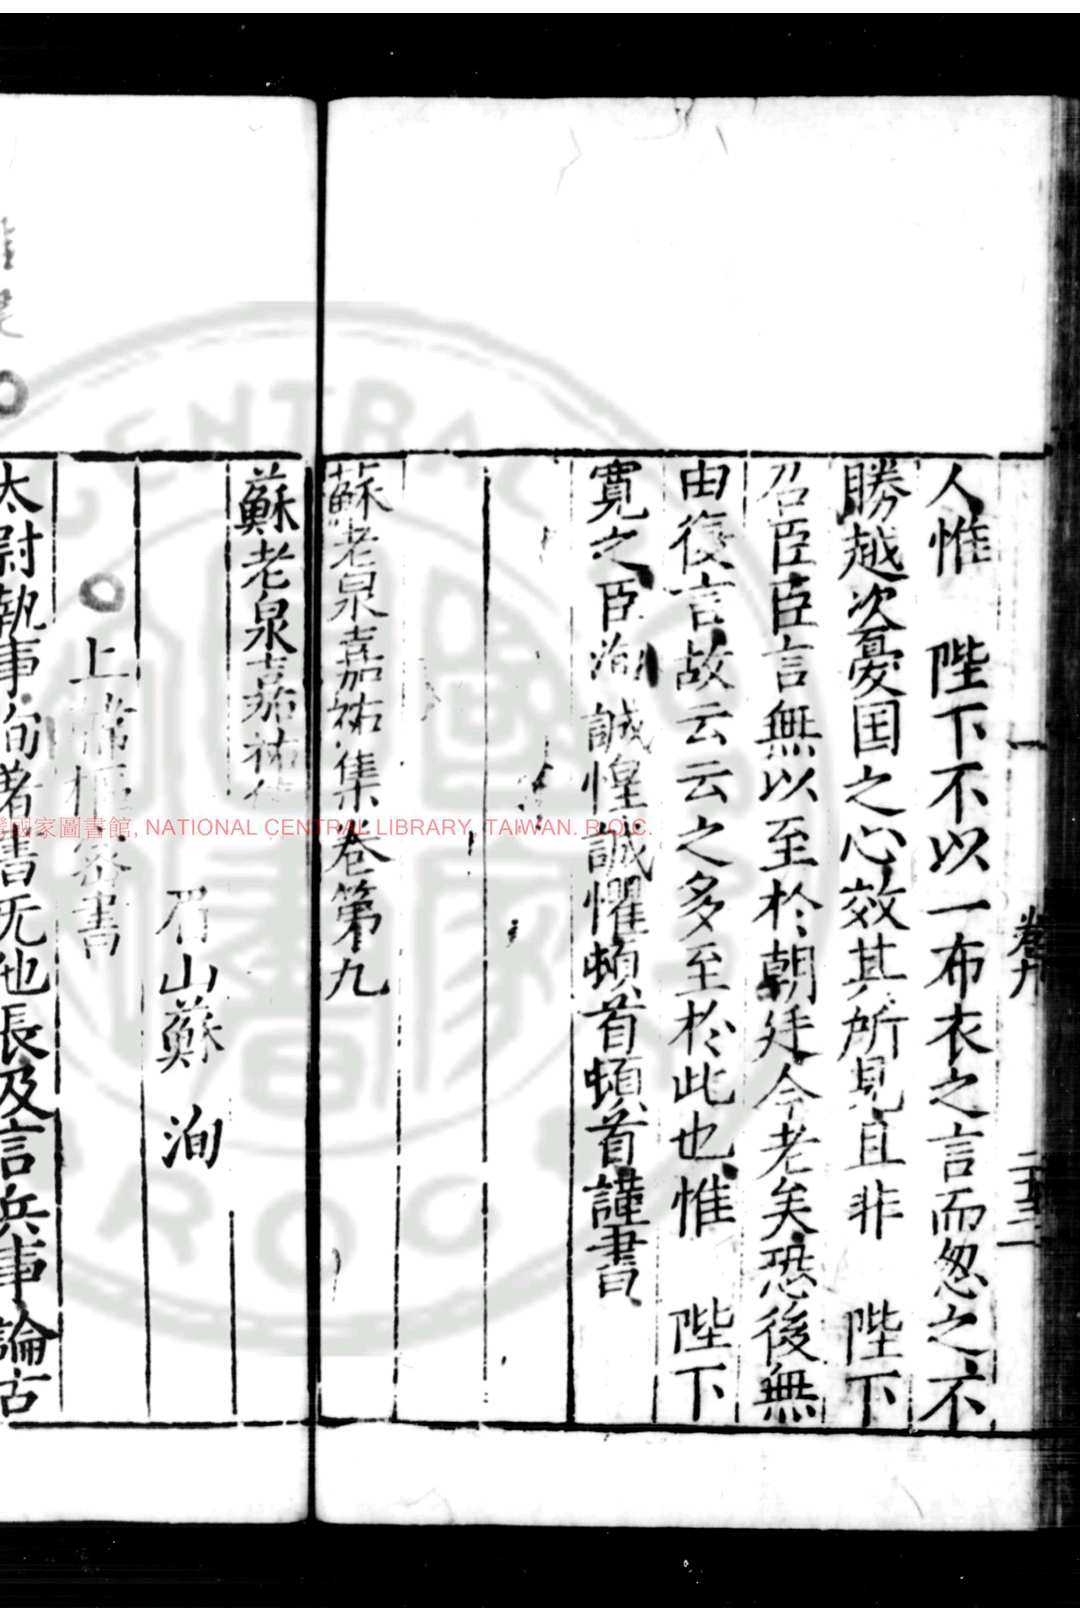 卷九
二十二
人惟　陛下不以一布衣之言而怱之不
勝越次憂国之心效其所見且非　陛下
召臣臣言無以至於朝廷今老矣恐後無
由復言故云云之多至於此也惟　陛下
寬之臣洵誠惶誠懼頓首頓首謹書
蘇老泉嘉祐集卷第九
蘇老泉嘉祐
眉山蘇　洵
上韓樞密書
太尉執事洵著書无他長及言兵事論古
國家圖書館, NATIONAL CENTRAL LIBRARY, TAIWAN. R.O.C.
CENTRAL
ROC